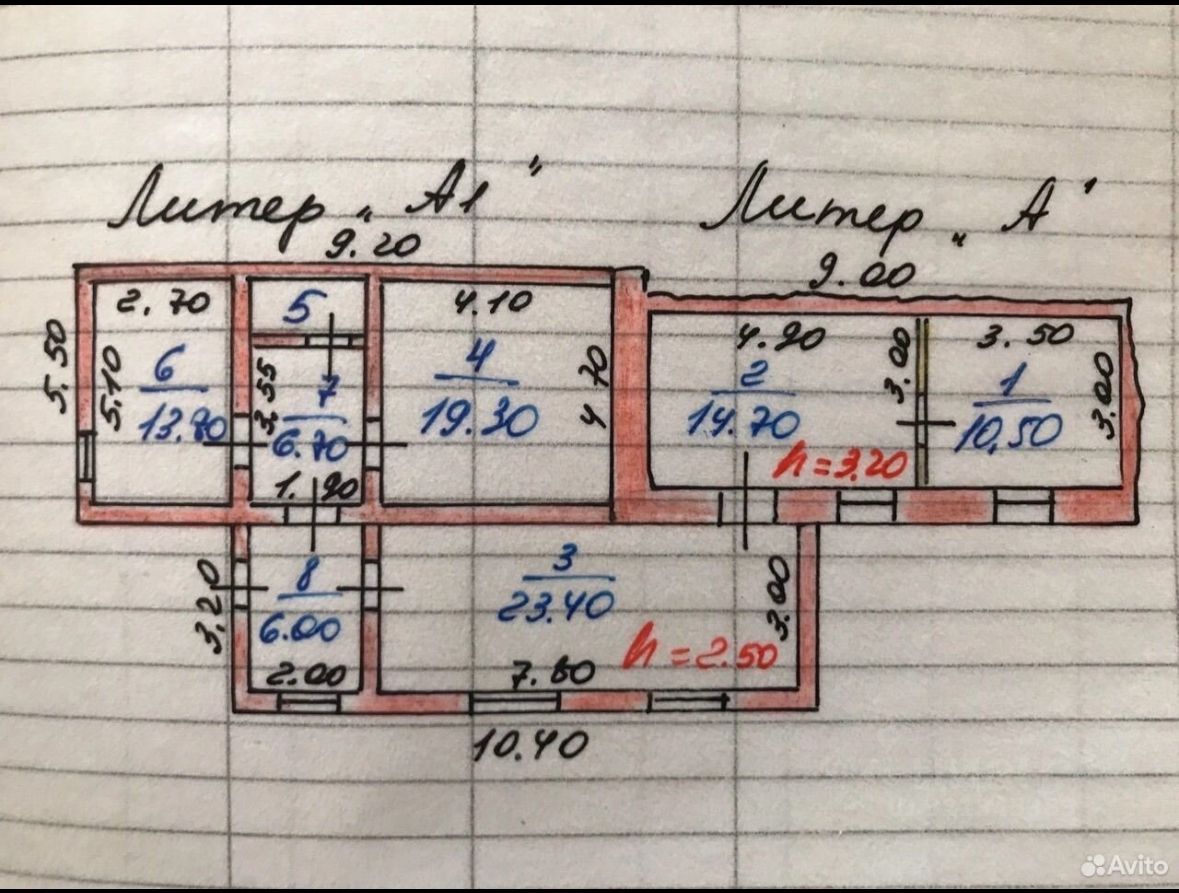 Литер „ А1 "
9.20
Литер „ А "
9.00
5.50
2.70
5.10
6
13.80
5
3.55
7
6.70
1.90
4.10
4
19.30
4.70
4.90
2
14.70
3.00
h = 3.20
3.50
1
10,50
3.00
3,20
8
6.00
2.00
3
23.40
3.00
h = 2.50
7.80
10.40
Avito